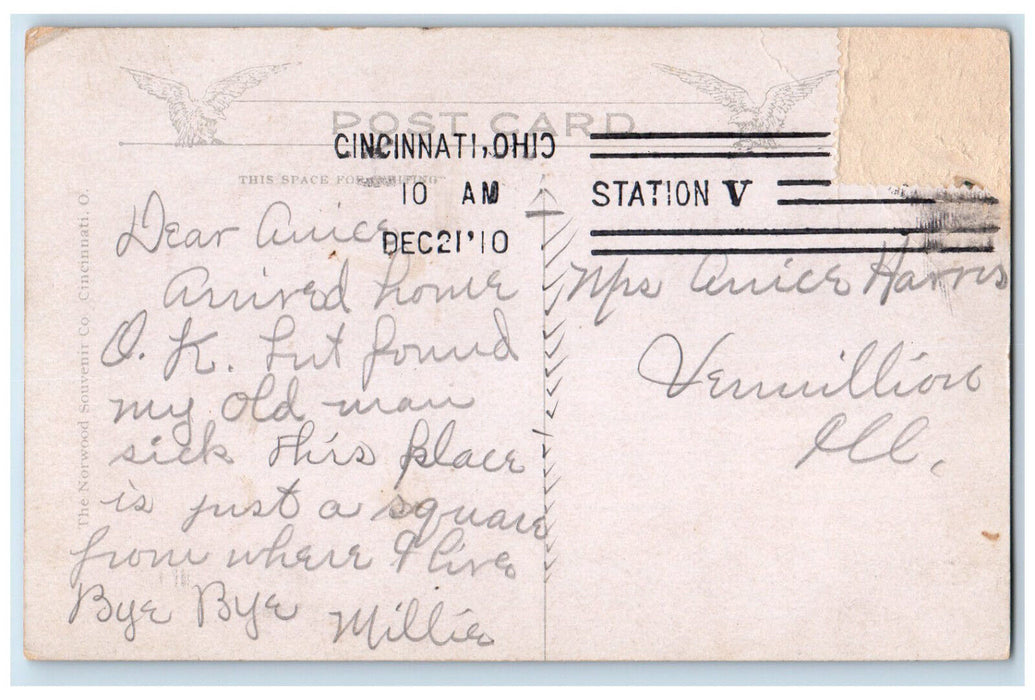 POST CARD
CINCINNATI, OHIO
THIS SPACE FOR WRITING
10 AM
STATION V
DEC 21 '10
Dear Anice
Arrived home
O. K. but found
my old man
sick this place
is just a square
from where I live
Bye Bye Millie
Mrs Anice Harris
Vermillion
Ill.
The Norwood Souvenir Co. Cincinnati, O.